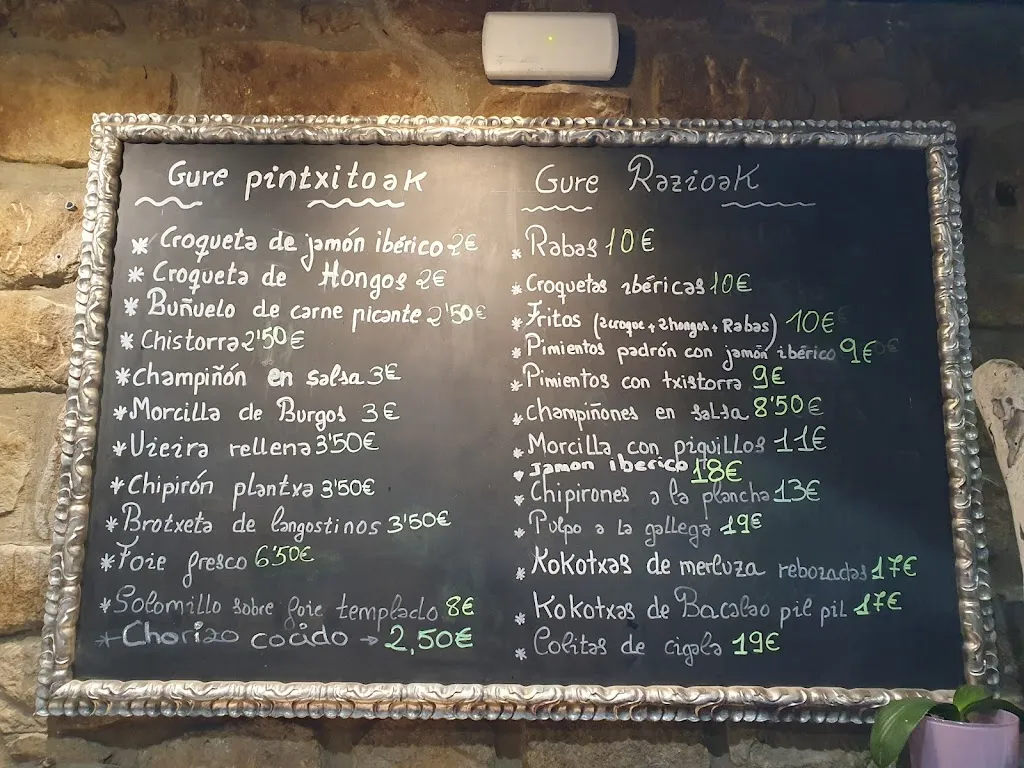 Gure pintxitoak
* Croqueta de jamón ibérico 2€
* Croqueta de Hongos 2€
* Buñuelo de carne picante 2'50€
* Chistorra 2'50€
* Champiñón en salsa 3€
* Morcilla de Burgos 3€
* Vieira rellena 3'50€
* Chipirón plantxa 3'50€
* Brotxeta de langostinos 3'50€
* Foie fresco 6'50€
* Solomillo sobre foie templado 8€
* Chorizo cocido → 2,50€
Gure Razioak
* Rabas 10€
* Croquetas ibéricas 10€
* Fritos (2croque + 2hongos + Rabas) 10€
* Pimientos padrón con jamón ibérico 9€
* Pimientos con txistorra 9€
* Champiñones en salsa 8'50€
* Morcilla con piquillos 11€
* Jamon iberico 18€
* Chipirones a la plancha 13€
* Pulpo a la gallega 19€
* Kokotxas de merluza rebozadas 17€
* Kokotxas de Bacalao pil pil 17€
* Colitas de cigala 19€